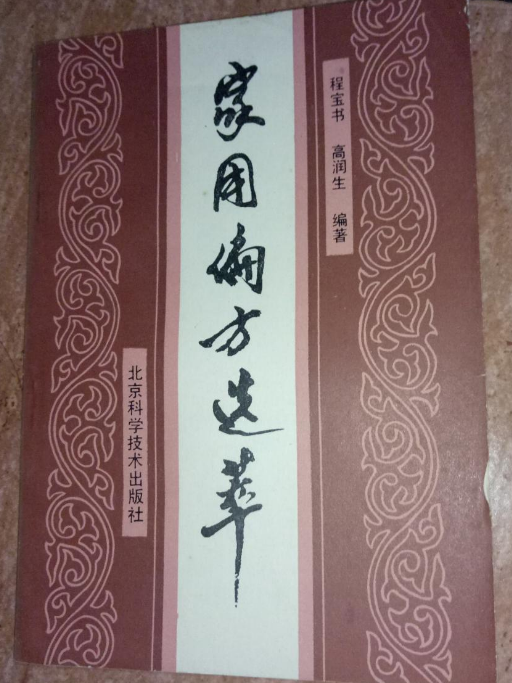 程宝书 高润生 编著
家用偏方选萃
北京科学技术出版社